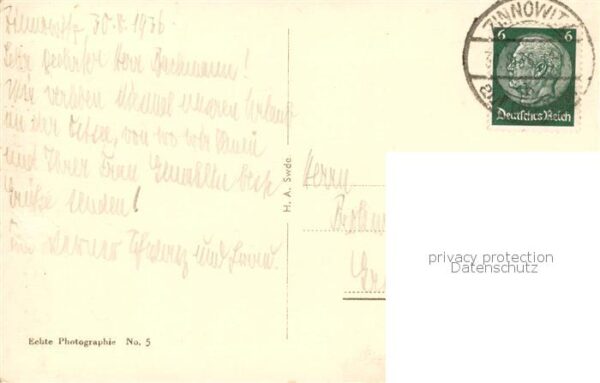 Zinnowitz 30.8.1936
Sehr geehrter Herr Beckmann!
Wir verleben diesmal unseren Urlaub
an der Ostsee, von wo wir Ihnen
und Ihrer Frau Gemahlin beste
Grüße senden!
Werner und Frau.
H. A. Swde
Herrn
ZINNOWITZ
6 6
Deutsches Reich
privacy protection
Datenschutz
Echte Photographie No. 5